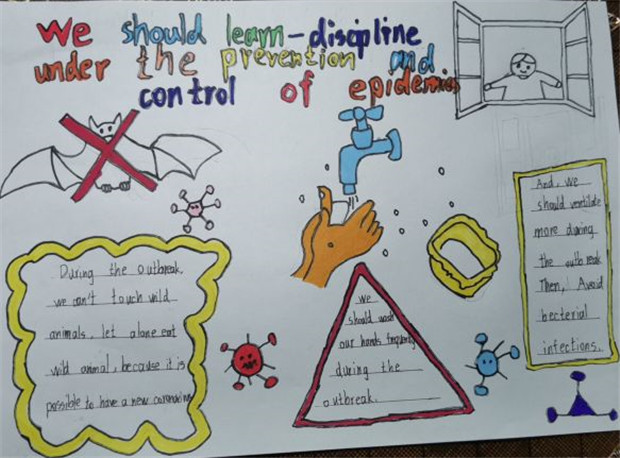 We should learn-discipline
under the prevention and
control of epidemics
During the outbreak,
we can't touch wild
animals, let alone eat
wild animal, because it is
possible to have a new coronavirus
We
should wash
our hands frequently
during the
outbreak.
And, we
should ventilate
more during
the outbreak
Then, Avoid
becterial
infections.